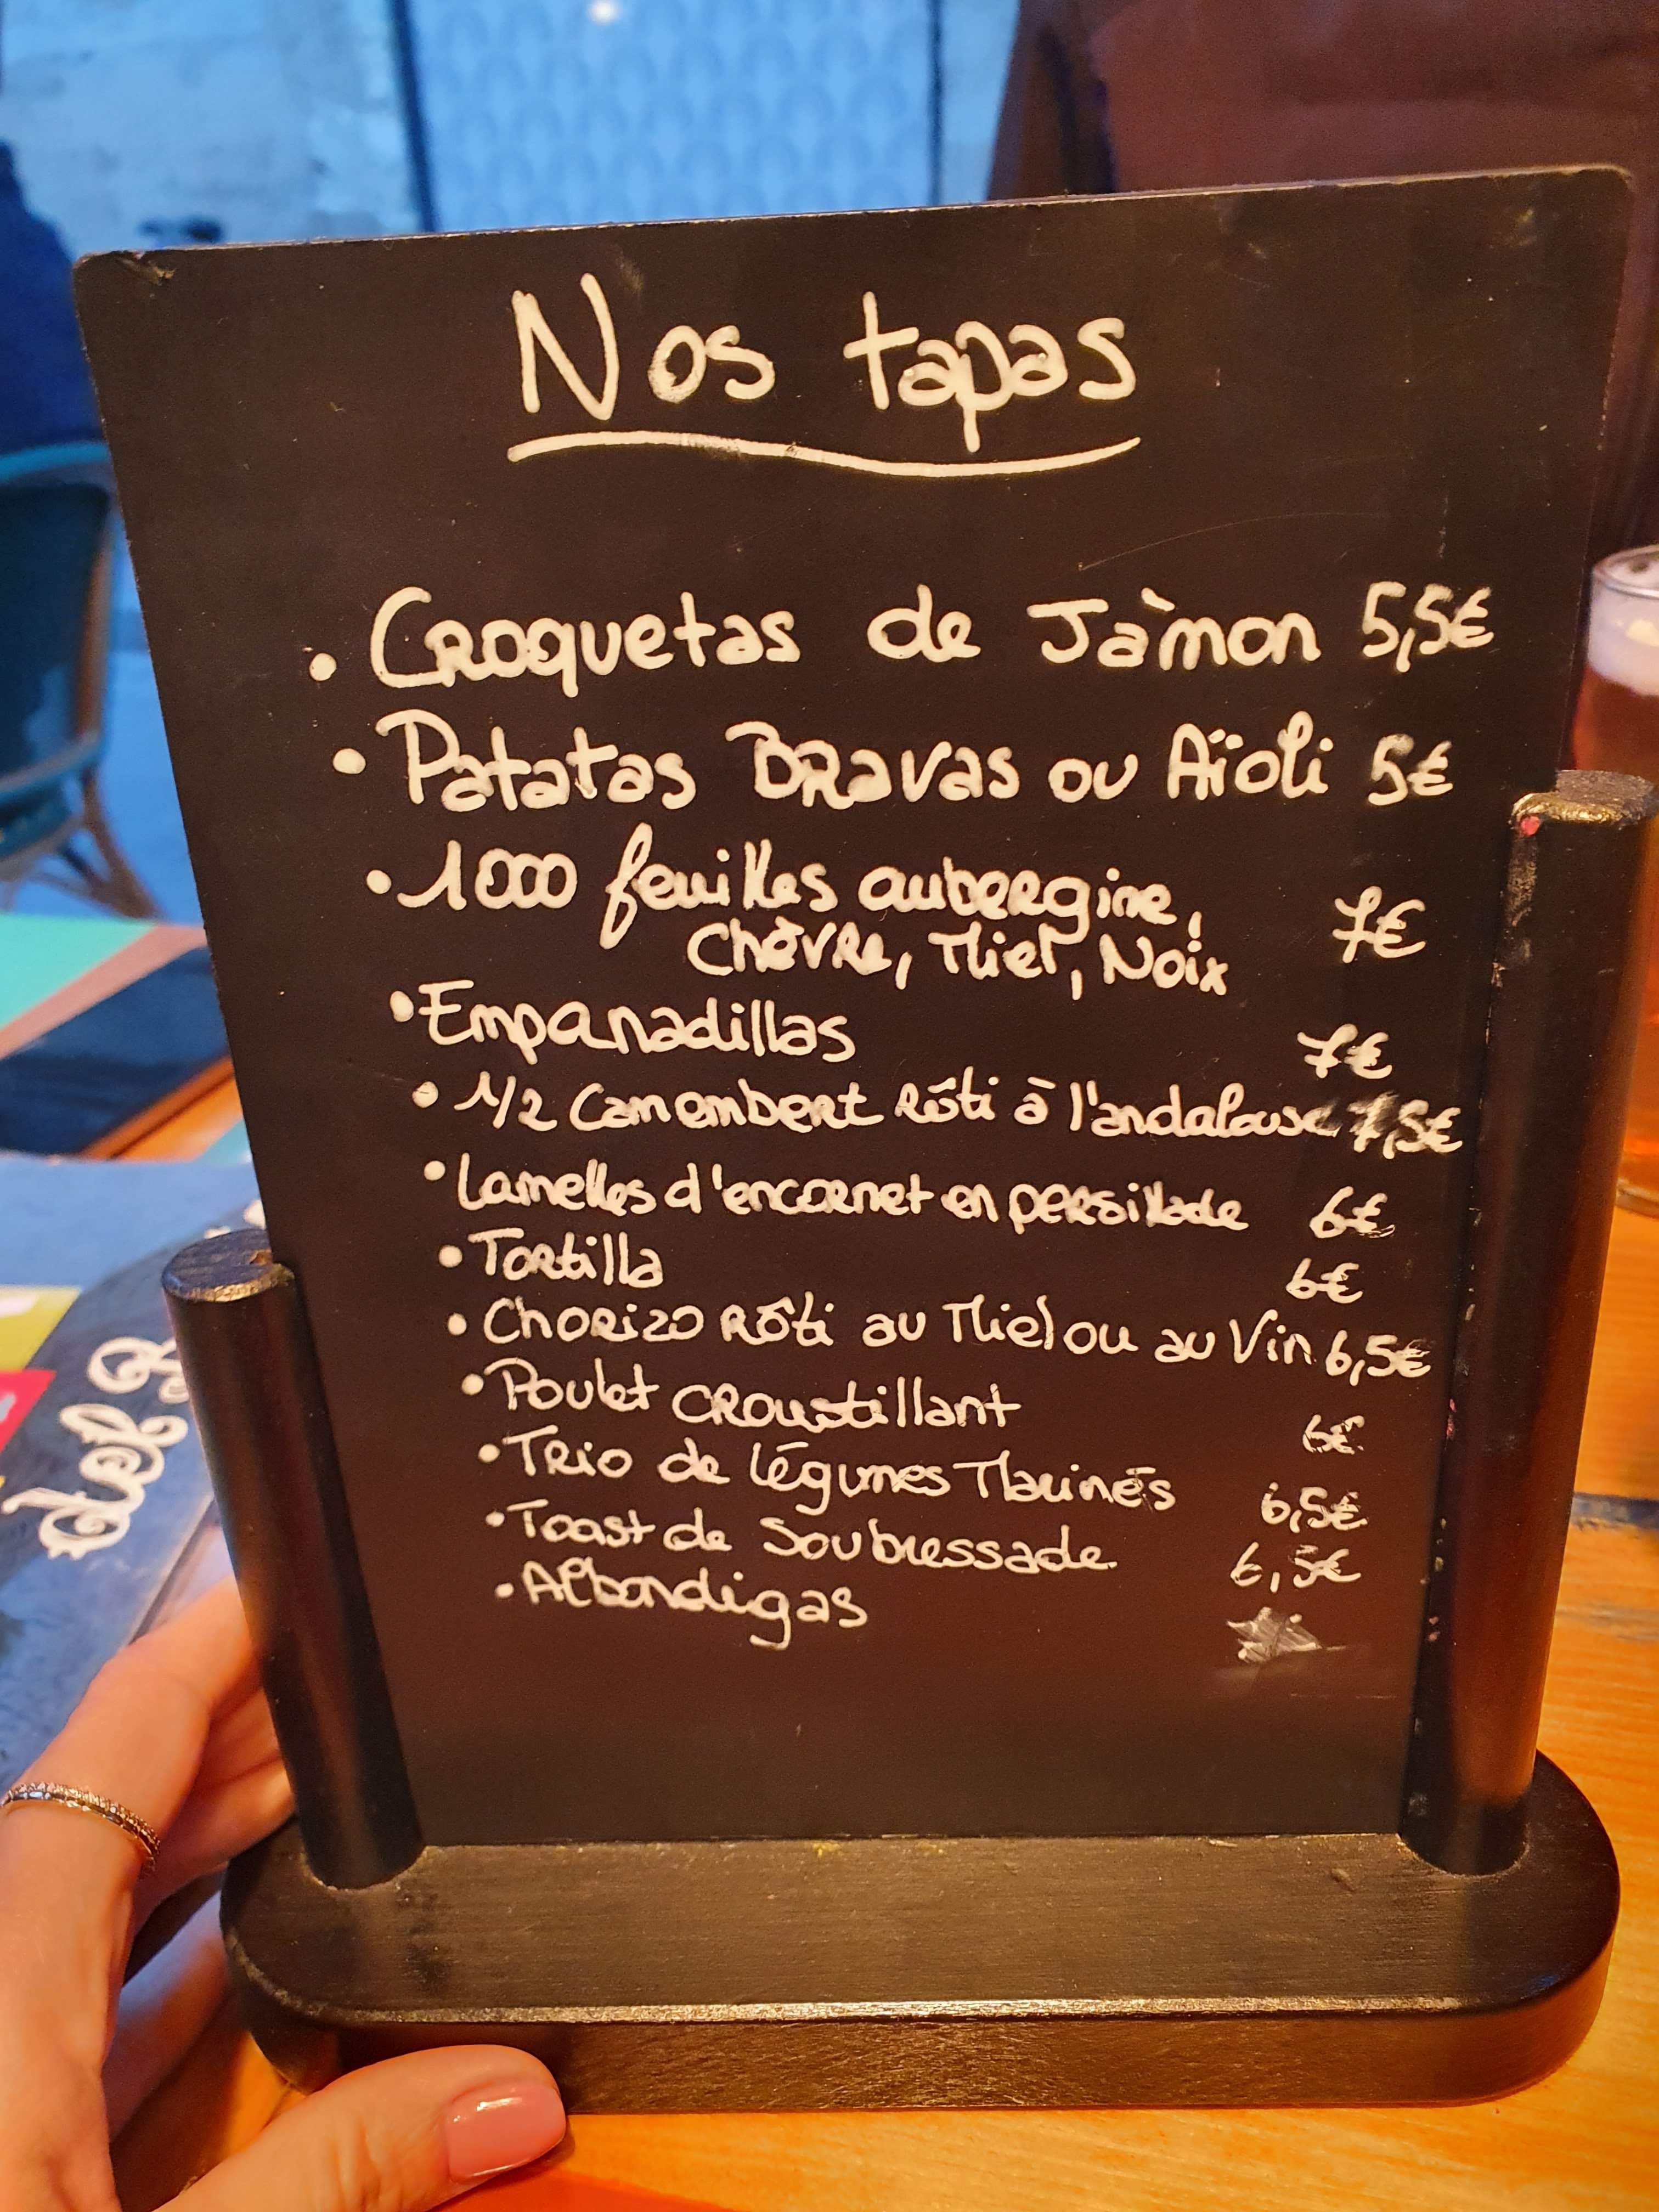 Nos tapas
• Croquetas de Jàmon 5,5€
• Patatas Bravas ou Aïoli 5€
• 1000 feuilles aubergine, 7€
Chèvre, Miel, Noix
• Empanadillas 7€
• 1/2 Camembert rôti à l'andalouse 7,5€
• Lamelles d'encornet en persillade 6€
• Tortilla 6€
• Chorizo Rôti au Miel ou au Vin 6,5€
• Poulet croustillant 6€
• Trio de légumes Marinés 6,5€
• Toast de Soubressade 6,5€
• Albondigas